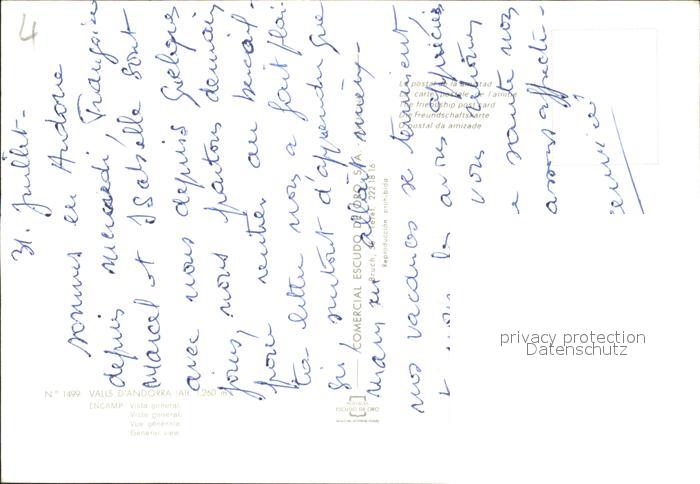 4
31. Juillet -
sommes en Andorre
depuis mercredi Françoise
Marcel et Isabelle sont
avec nous depuis quelques
jours, nous partons demain
pour rentrer au bercail -
ta lettre nous a fait plai-
sir, surtout d'apprendre que
Mary est allant mieux -
nos vacances se terminent,
nous les avons appréciées
vous
santé nos
assos affecti-
La postal de la amistad
La carte postale de l'amitié
The friendship post card
Die Freundschaftskarte
O postal da amizade
COMERCIAL ESCUDO DE ORO, S. A.
Bruch, Teléf. 222 18 16
Reproducción prohibida
N.º 1499 VALLS D'ANDORRA (Alt. 1.260 m.)
ENCAMP Vista general.
Vista general.
Vue générale.
General view.
POSTALES
ESCUDO DE ORO
privacy protection
Datenschutz